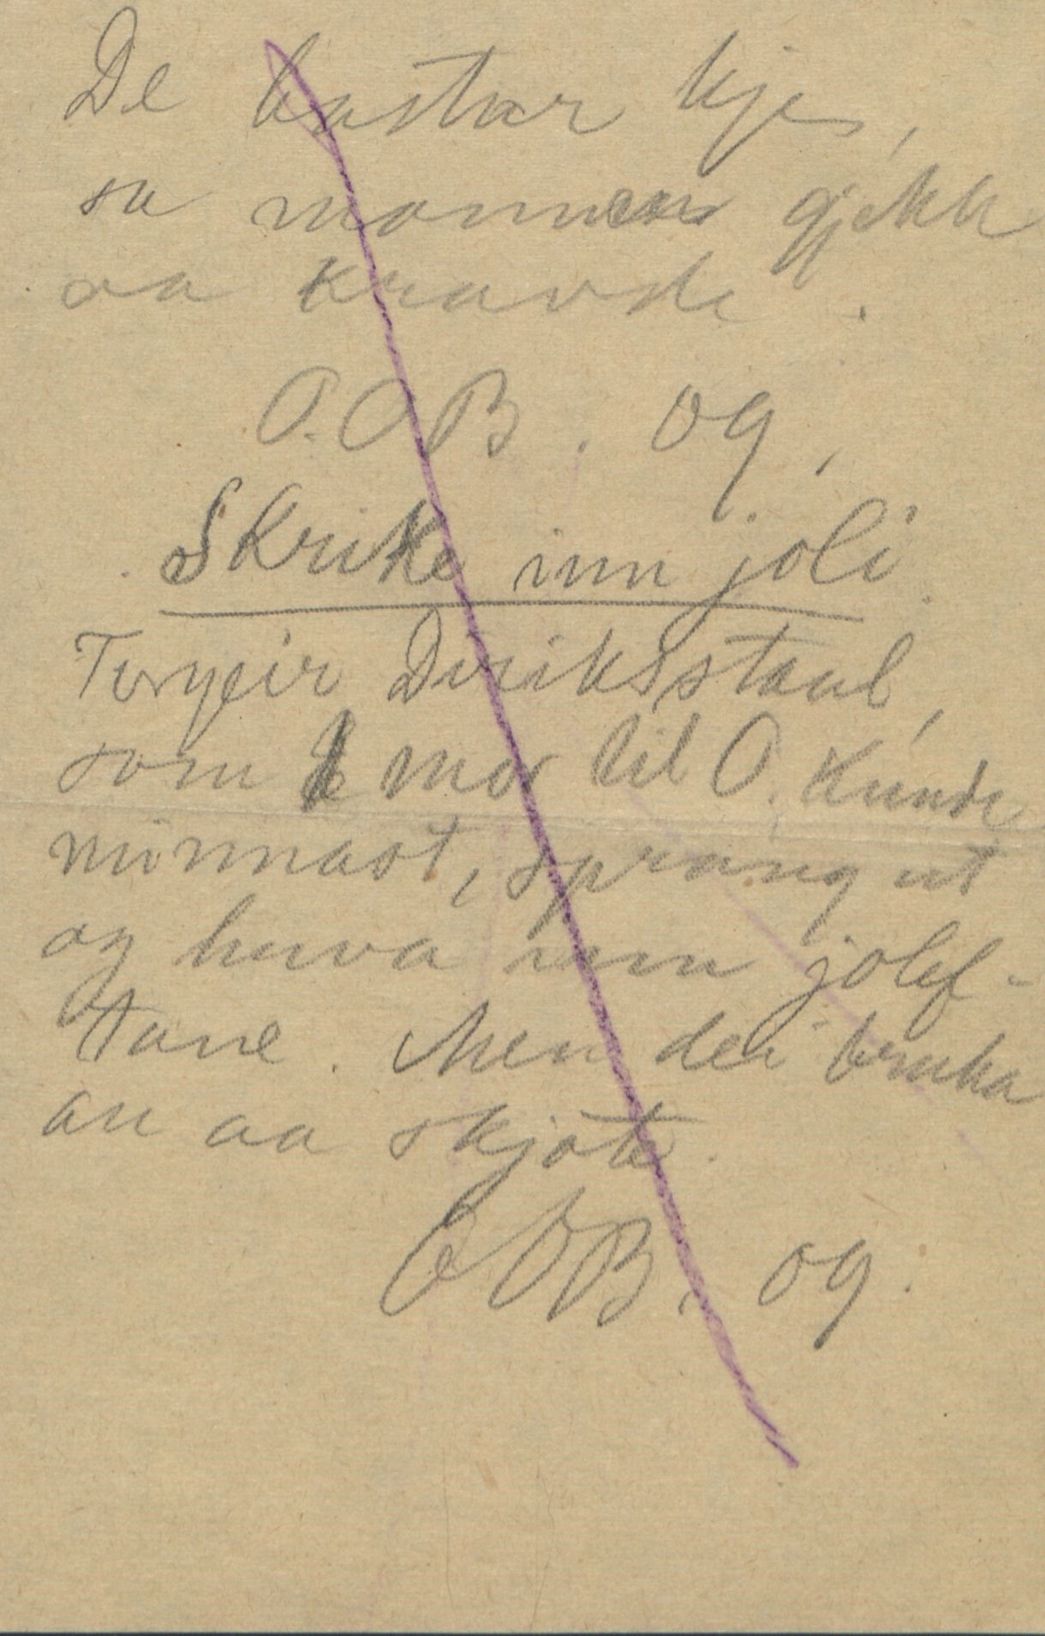 De hastar kje,
sa mannen gjekk
aa kravde.
O.O.B. og.
Skrike inn joli.
Torgeir Diriksstaul,
som mor til O. kunde
minnast, sprang ut
og huva inn jolef-
tane. Men dei bruka
au aa skjote.
O O B. og.